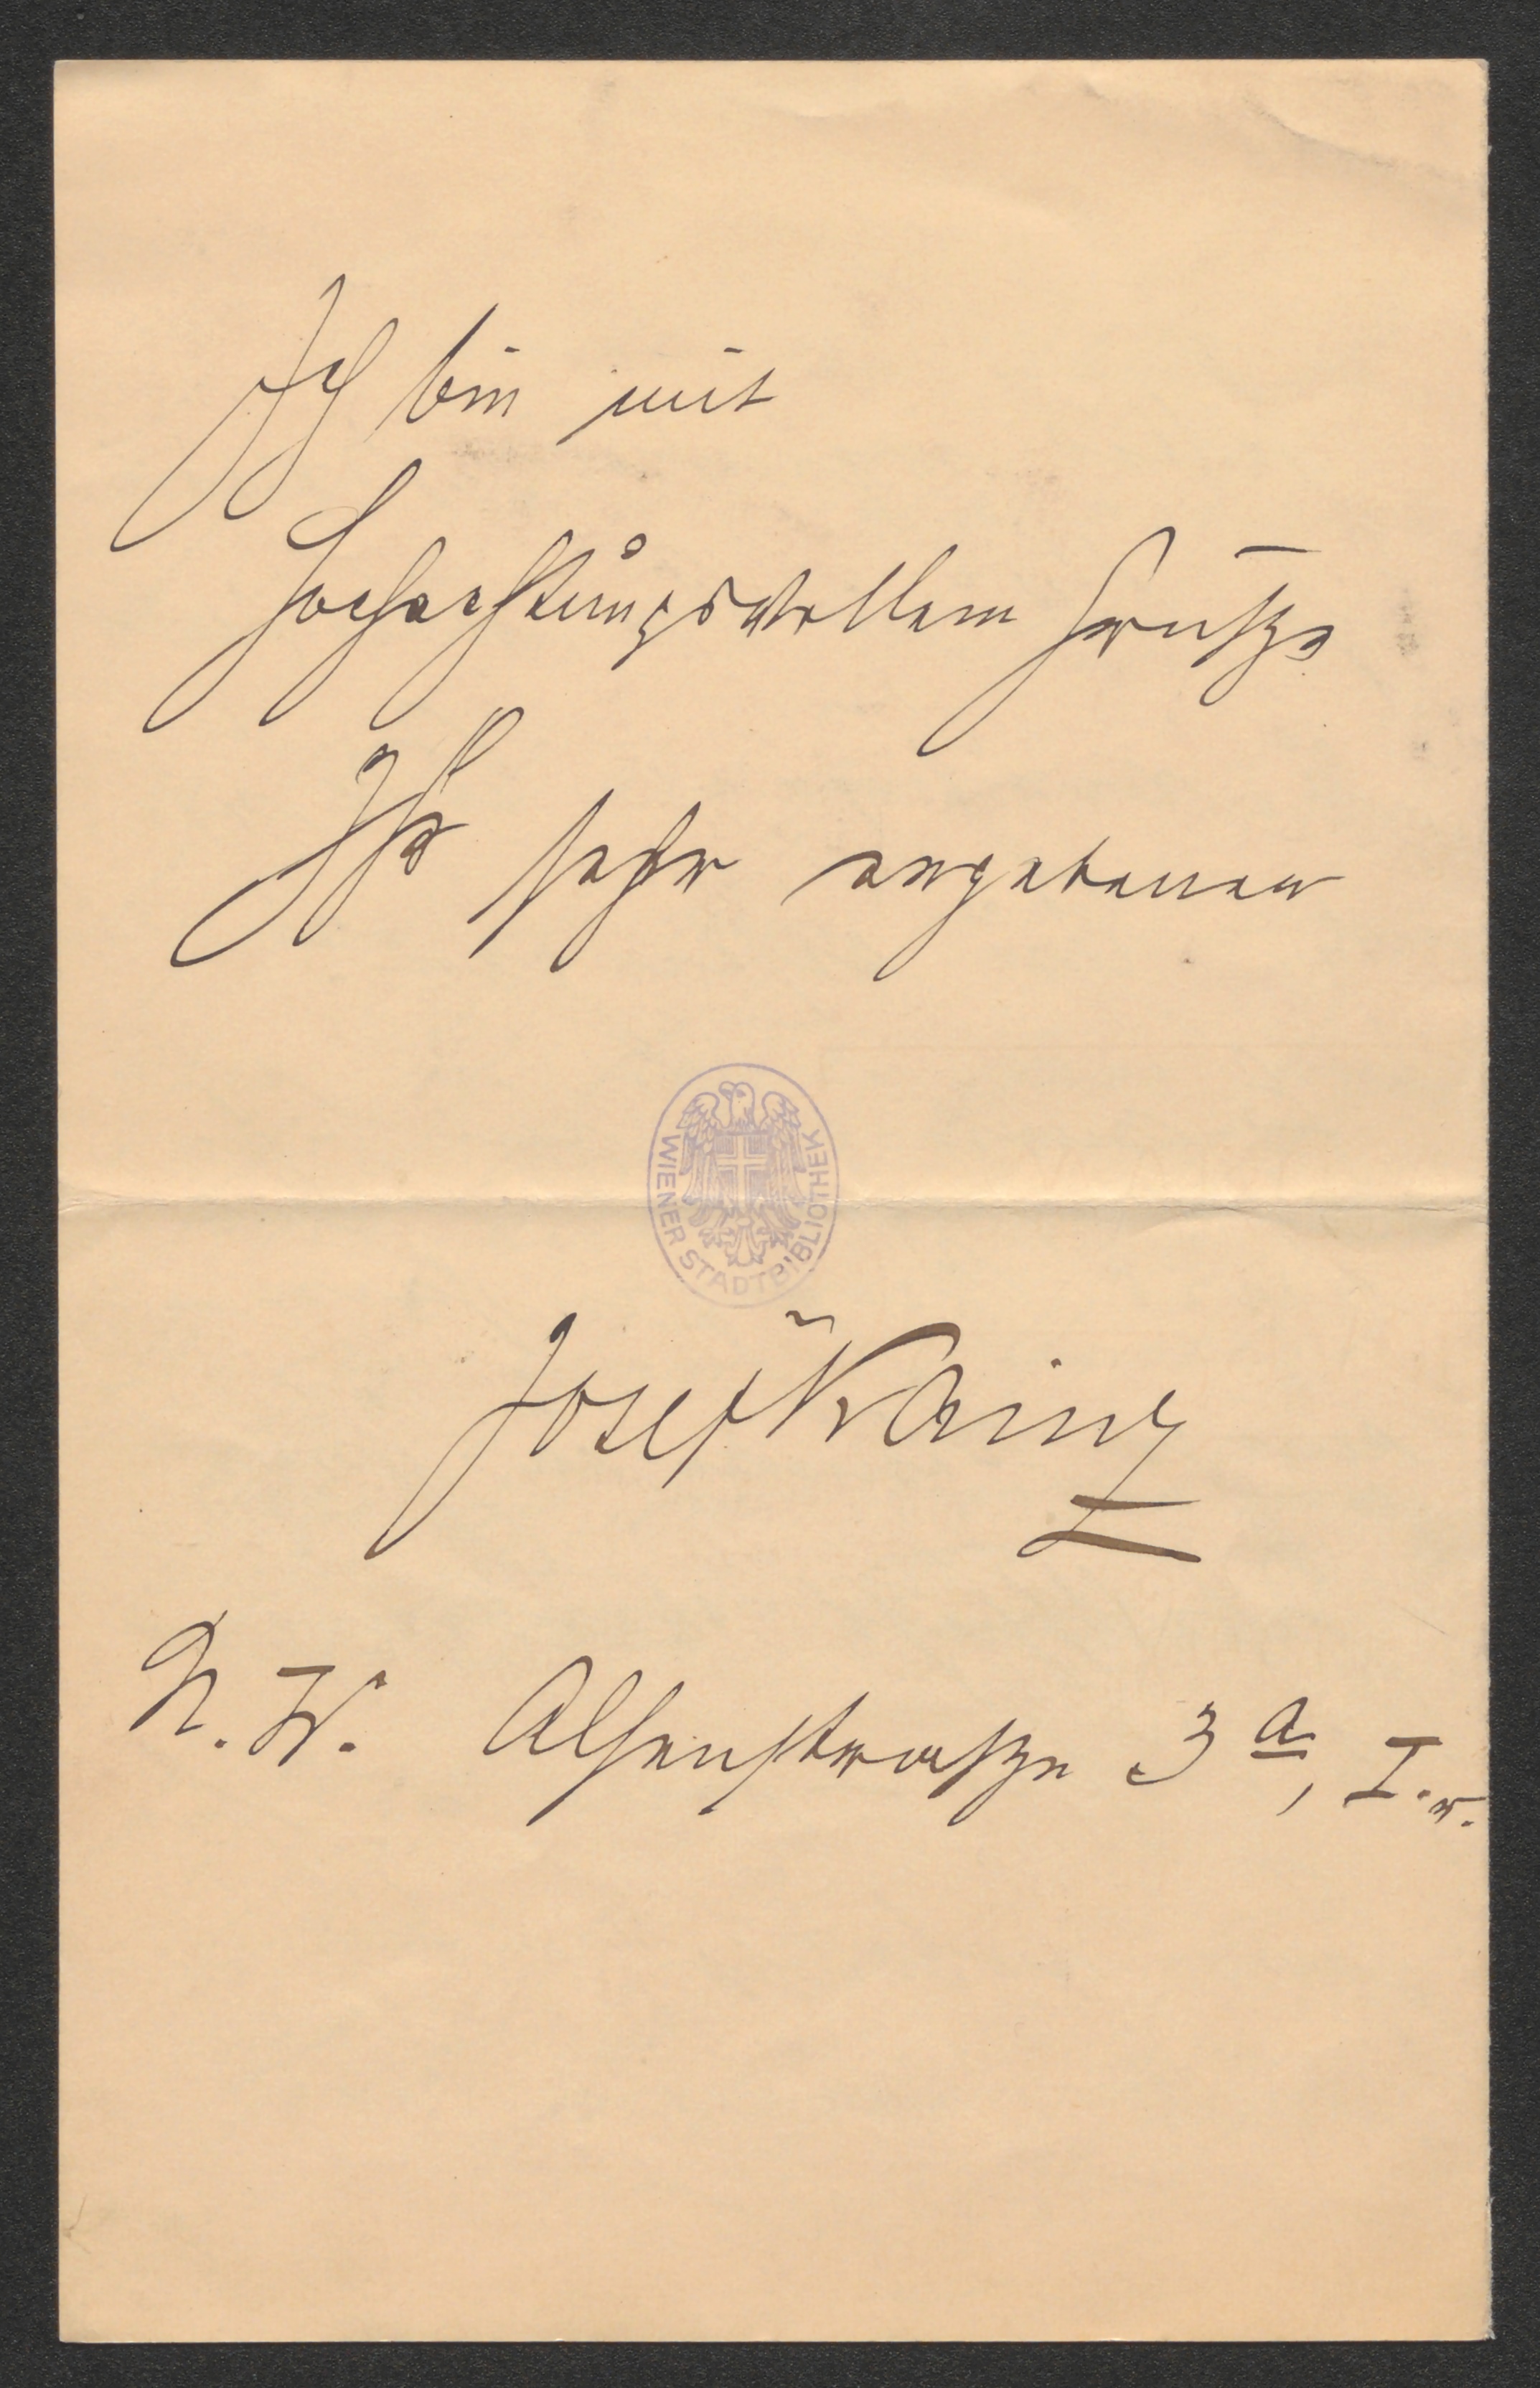 Ich bin mit
hochachtungsvollem Gruße
Ihr sehr ergebener
WIENER STADTBIBLIOTHEK
Josef Kainz
N. W. Alsenstraße 3 a, I. r.